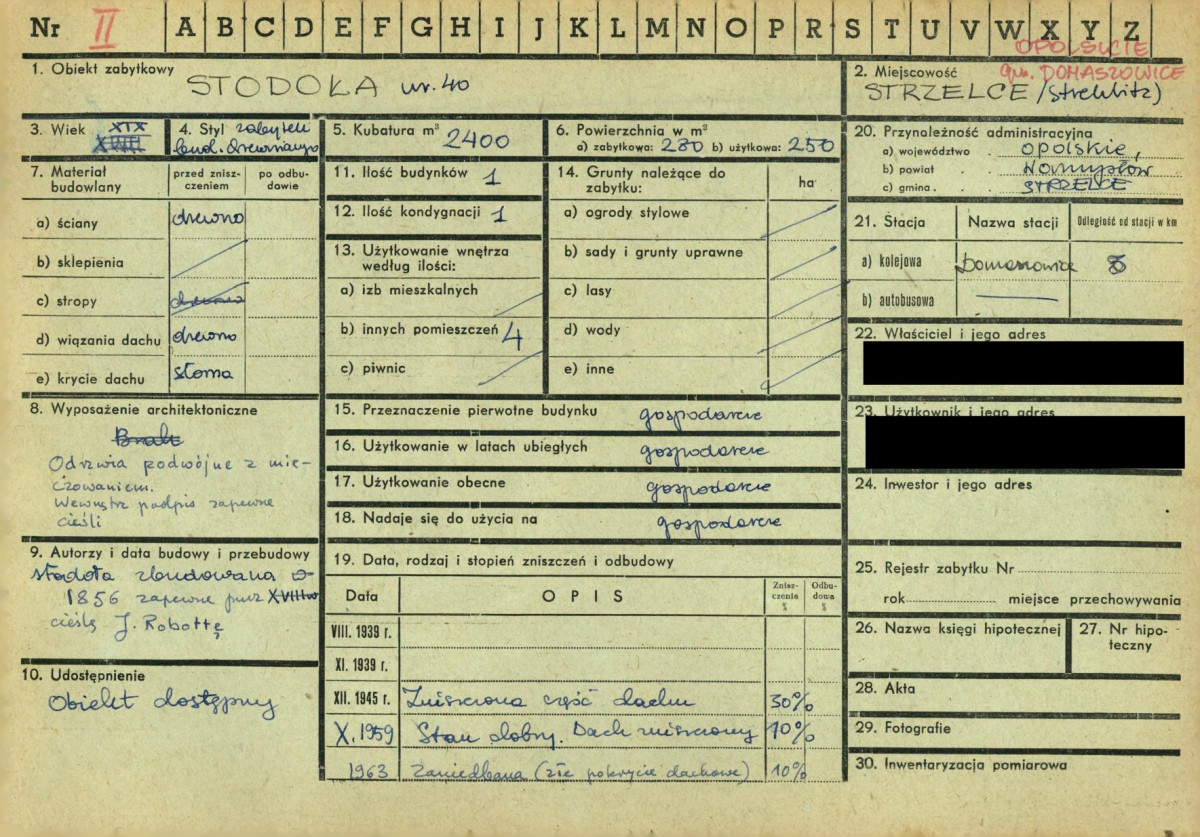 Nr II A B C D E F G H I J K L M N O P R S T U V W X Y Z
OPOLSKIE
1. Obiekt zabytkowy
STODOŁA nr. 40
2. Miejscowość gm. DOMASZOWICE
STRZELCE /Strehlitz)
3. Wiek XIX
XVIII
4. Styl zabytek
bud. drewnianego
5. Kubatura m³ 2400
6. Powierzchnia w m²
a) zabytkowa: 280 b) użytkowa: 250
20. Przynależność administracyjna
a) województwo opolskie,
b) powiat Namysłów
c) gmina STRZELCE
7. Materiał budowlany
przed znisz-
czeniem
po odbu-
dowie
a) ściany drewno
b) sklepienia
c) stropy drewno
d) wiązania dachu drewno
e) krycie dachu słoma
11. Ilość budynków 1
12. Ilość kondygnacji 1
13. Użytkowanie wnętrza
według ilości:
a) izb mieszkalnych
b) innych pomieszczeń 4
c) piwnic
14. Grunty należące do
zabytku:
ha
a) ogrody stylowe
b) sady i grunty uprawne
c) lasy
d) wody
e) inne
21. Stacja Nazwa stacji Odległość od stacji w km
a) kolejowa Domaszowice 8
b) autobusowa
22. Właściciel i jego adres
23. Użytkownik i jego adres
8. Wyposażenie architektoniczne
Brak
Odrzwia podwójne z mie-
czowaniem.
Wewnątrz podpis zapewne
cieśli
15. Przeznaczenie pierwotne budynku gospodarcze
16. Użytkowanie w latach ubiegłych gospodarcze
17. Użytkowanie obecne gospodarcze
18. Nadaje się do użycia na gospodarcze
24. Inwestor i jego adres
9. Autorzy i data budowy i przebudowy
stodoła zbudowana w
1856 zapewne przez XVIII w
cieślę J. Robottę
10. Udostępnienie
Obiekt dostępny
19. Data, rodzaj i stopień zniszczeń i odbudowy
Data OPIS Znisz-
czenia
% Odbu-
dowa
%
VIII. 1939 r.
XI. 1939 r.
XII. 1945 r. Zniszczona część dachu 30%
X. 1959 Stan dobry. Dach zniszczony 10%
1963 Zaniedbana (złe pokrycie dachowe) 10%
25. Rejestr zabytku Nr
rok miejsce przechowywania
26. Nazwa księgi hipotecznej
27. Nr hipo-
teczny
28. Akta
29. Fotografie
30. Inwentaryzacja pomiarowa